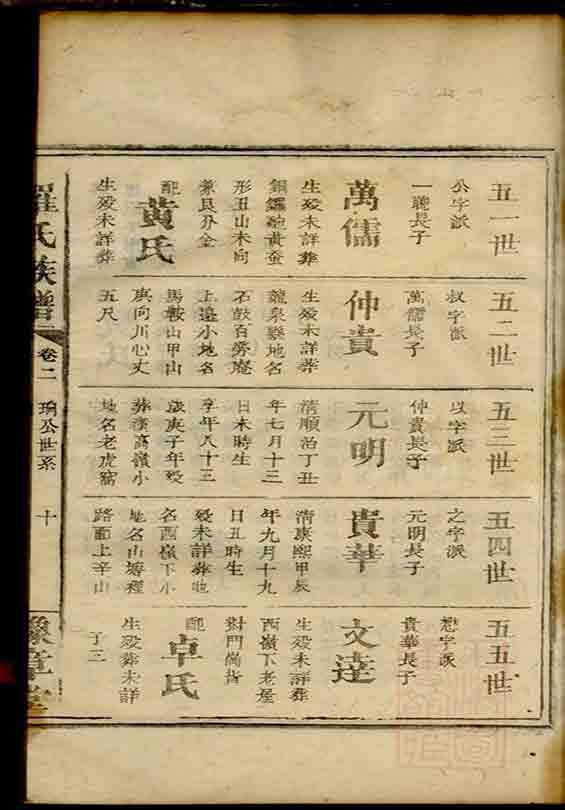 五一世
公字派
一聰長子
萬儒
生殁未詳葬
銅鑼融黃蚕
形丑山未向
兼艮分金
配
黃氏
生殁未詳葬
五二世
叔字派
萬儒長子
仲貴
生殁未詳葬
龍泉縣地名
石鼓百勞庵
上邉小地名
馬鞍山甲山
庚向川心丈
五尺
五三世
以字派
仲貴長子
元明
清順治丁丑
年七月十三
日未時生
享年八十三
歲庚子年殁
葬漢高嶺小
地名老虎窩
五四世
之字派
元明長子
貴華
清康熙甲辰
年九月十九
日丑時生
殁未詳葬地
名西嶺下小
地名山塘裡
路面上辛山
五五世
懋字派
貴華長子
文達
生殁未詳葬
西嶺下老屋
對門崗背
配
卓氏
生殁葬未詳
丁三
羅氏族譜
卷二
珦公世系
十
豫章堂